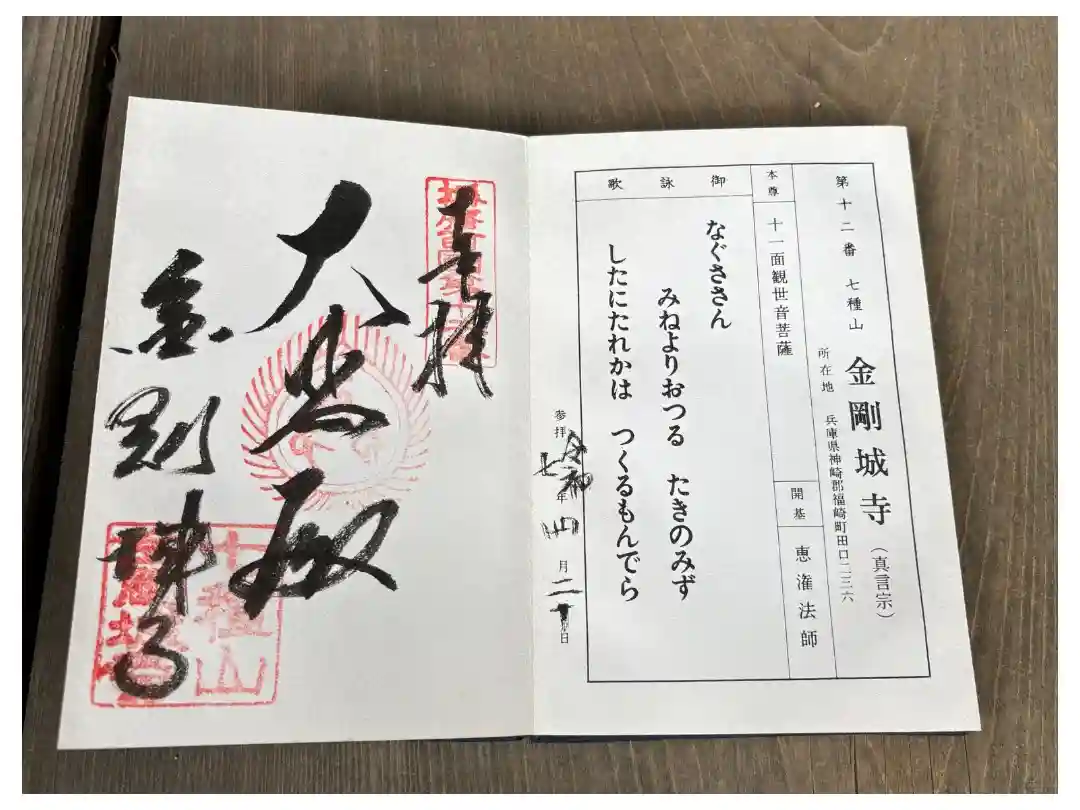 第十二番 七種山 金剛城寺(真言宗)
所在地 兵庫県神崎郡福崎町田口二三六
本尊 十一面観世音菩薩
開基 恵潅法師
御詠歌
なぐささん
みねよりおつる たきのみず
したにたれかは つくるもんでら
参拝 令和七年四月二十日
奉拝
大悲殿
金剛城寺
七種山